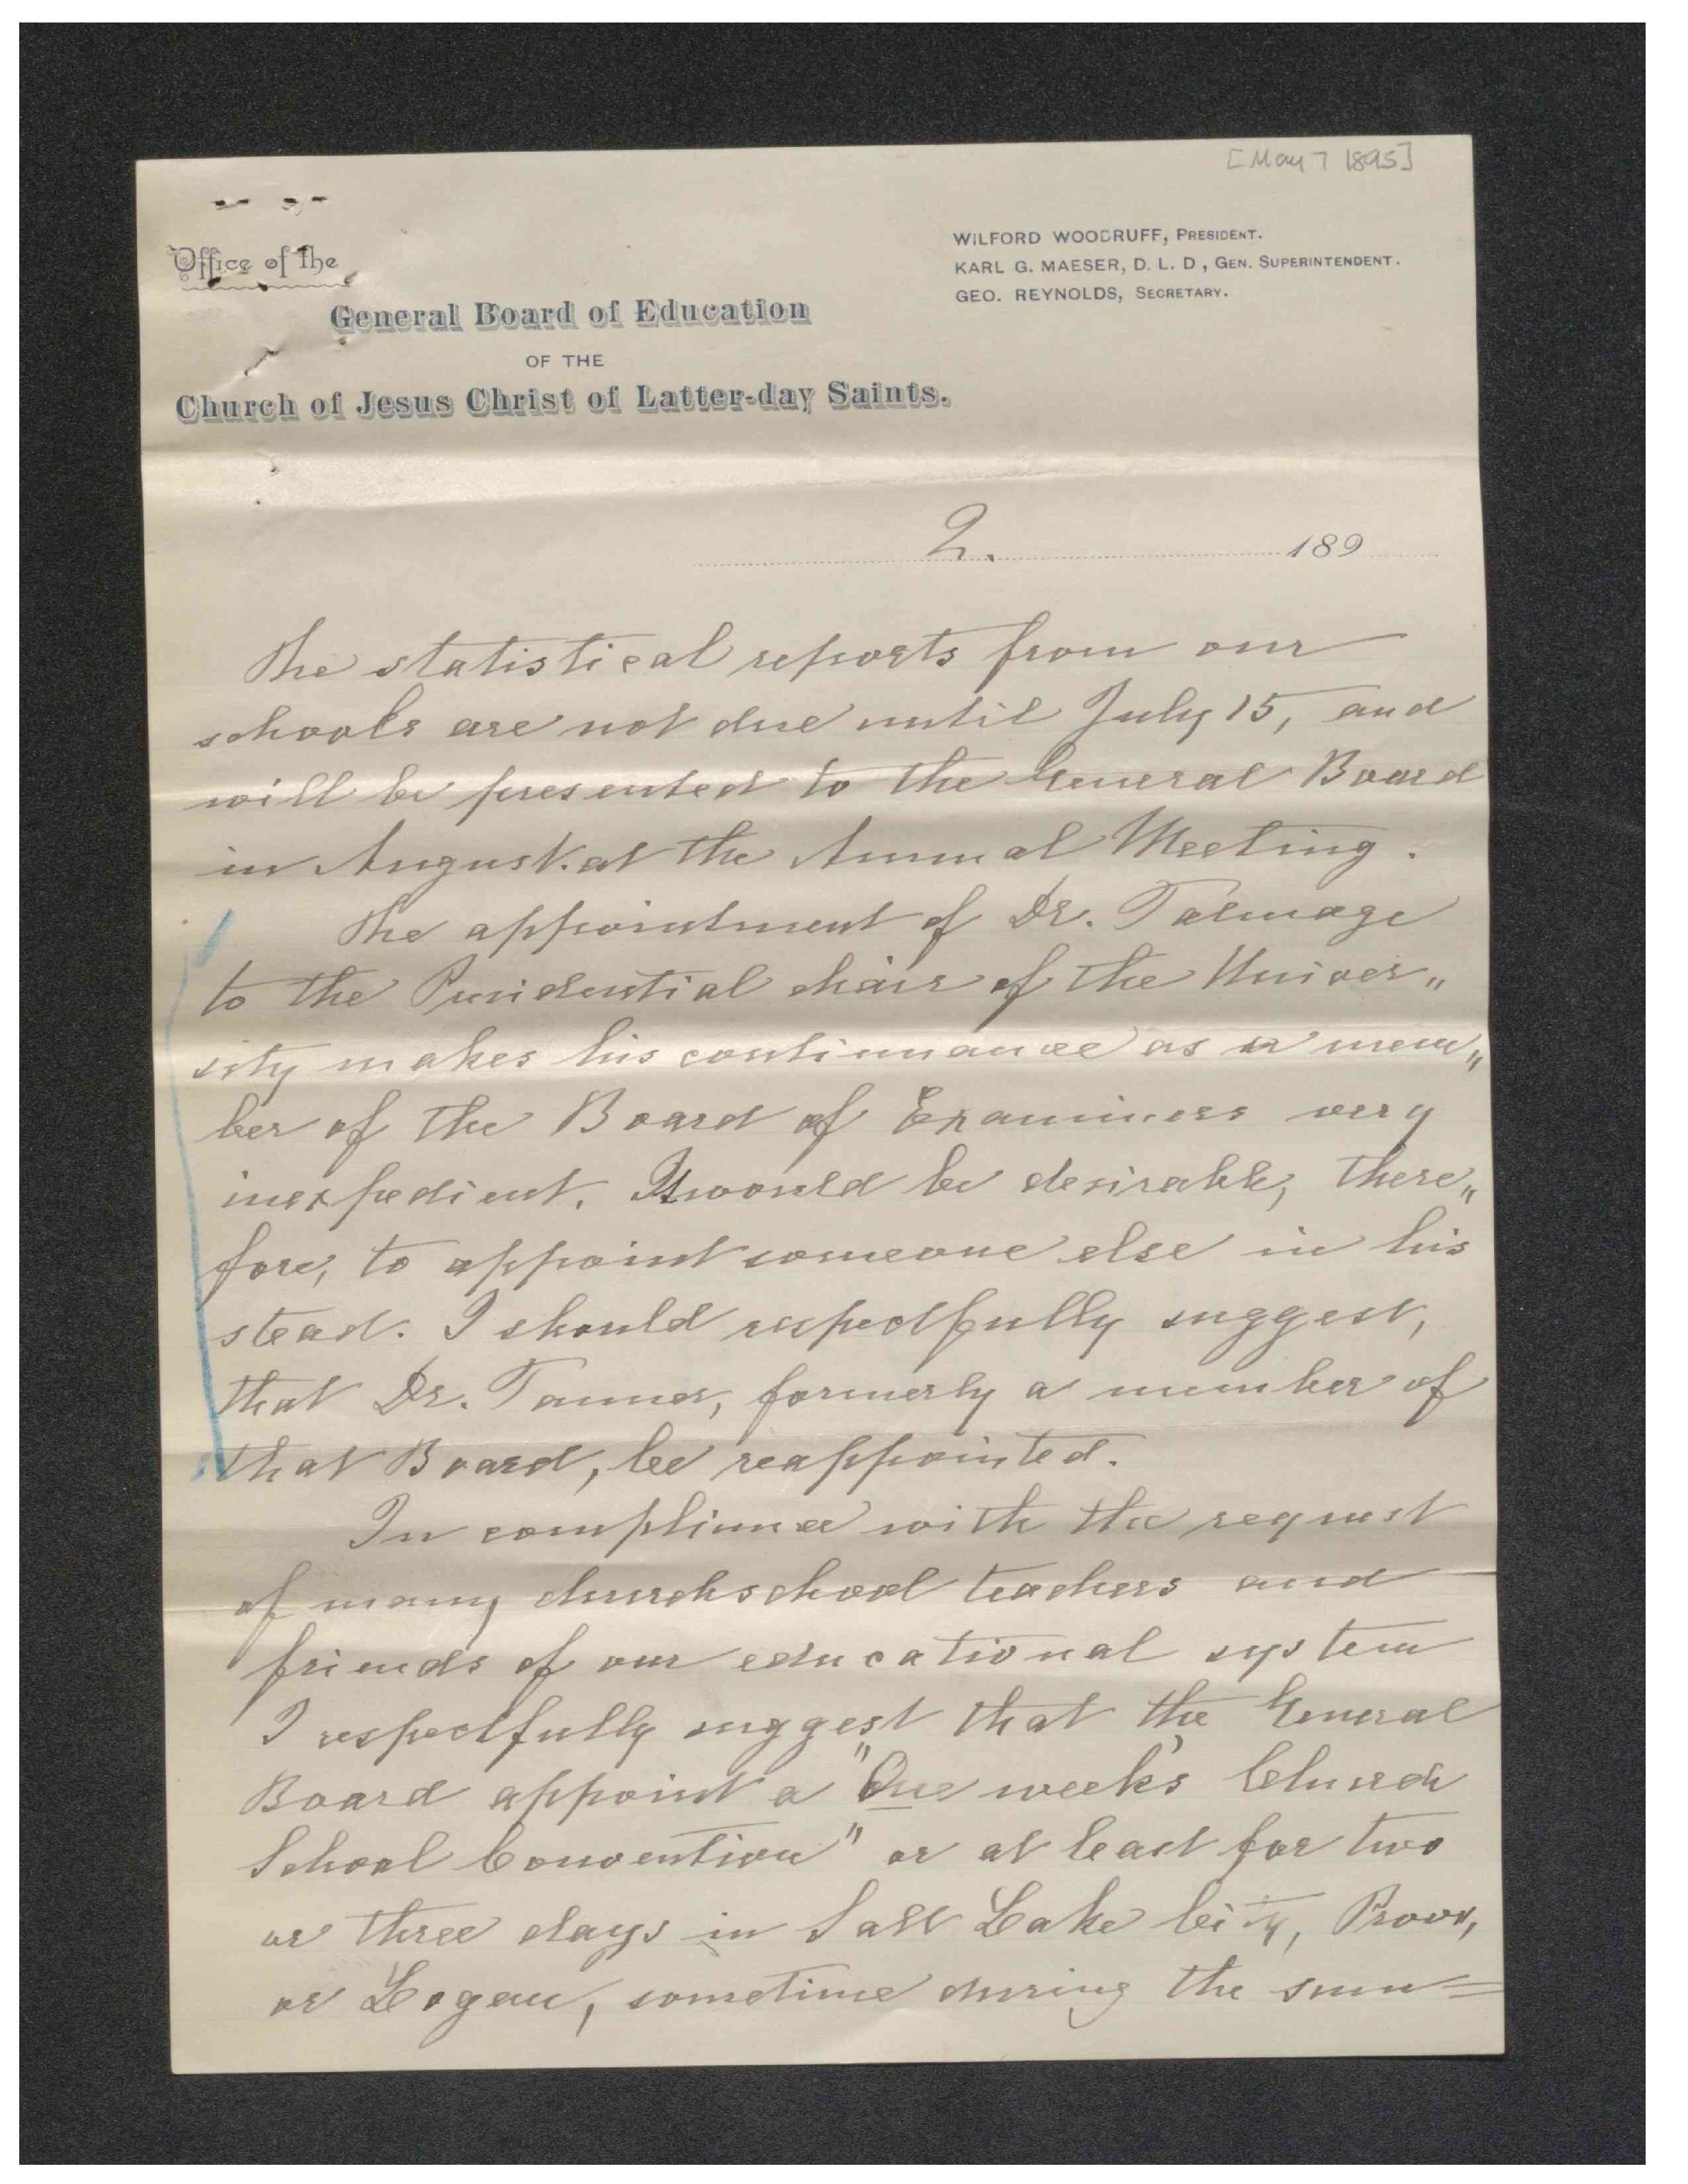 [May 7 1895]
Office of the
General Board of Education
OF THE
Church of Jesus Christ of Latter-day Saints.
WILFORD WOODRUFF, PRESIDENT.
KARL G. MAESER, D. L. D, GEN. SUPERINTENDENT.
GEO. REYNOLDS, SECRETARY.
2. 189
The statistical reports from our
schools are not due until July 15, and
will be presented to the General Board
in August. at the Annual Meeting.
The appointment of Dr. Talmage
to the Presidential chair of the Univer„
sity makes his continuance as a mem„
ber of the Board of Examiners very
inexpedient. It would be desirable, there„
fore, to appoint someone else in his
stead. I should respectfully suggest,
that Dr. Tanner, formerly a member of
that Board, be reappointed.
In compliance with the request
of many churchschool teachers and
friends of our educational system
I respectfully suggest that the General
Board appoint a "One week's Church
School Convention" or at least for two
or three days in Salt Lake City, Provo,
or Logan, sometime during the sum=